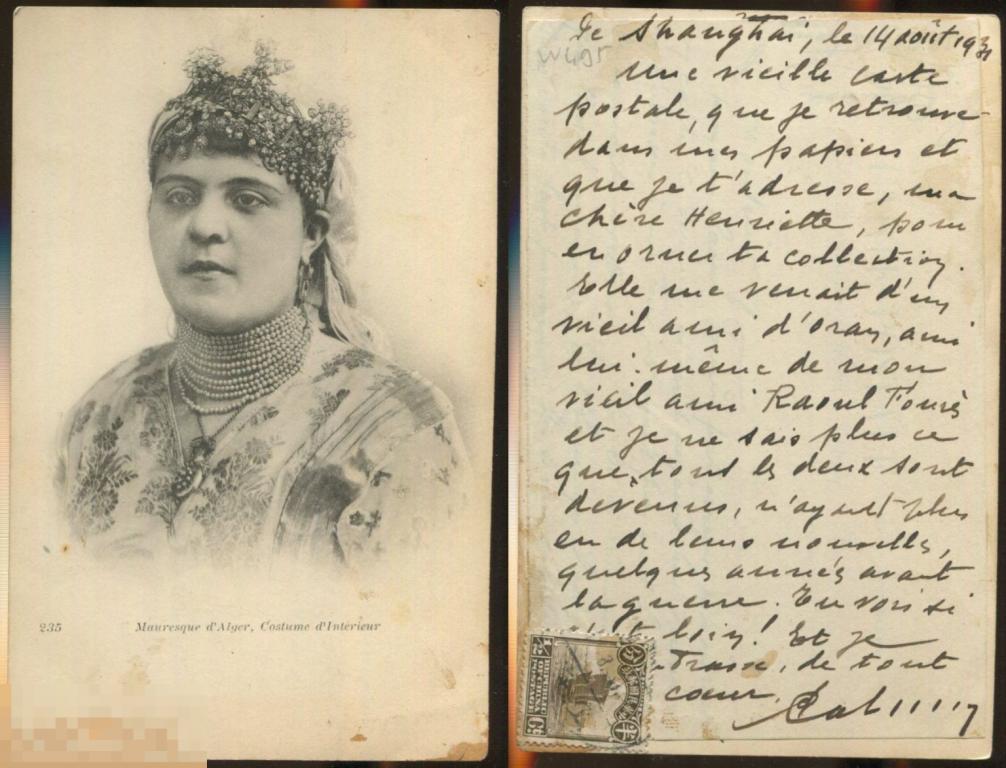 235
Mauresque d'Alger, Costume d'Intérieur
De Shanghaï, le 14 août 1931
W495
Une vieille carte
postale, que je retrouve
dans mes papiers et
que je t'adresse, ma
chère Henriette, pour
en orner ta collection.
Elle me venait d'un
vieil ami d'Oran, ami
lui-même de mon
vieil ami Raoul
et je ne sais plus ce
que tous les deux sont
devenus, n'ayant plus
eu de leurs nouvelles,
quelques années avant
la guerre. Tu vois si
loin! Et je
de tout
cœur.
½
REPUBLIC OF CHINA
POSTAGE